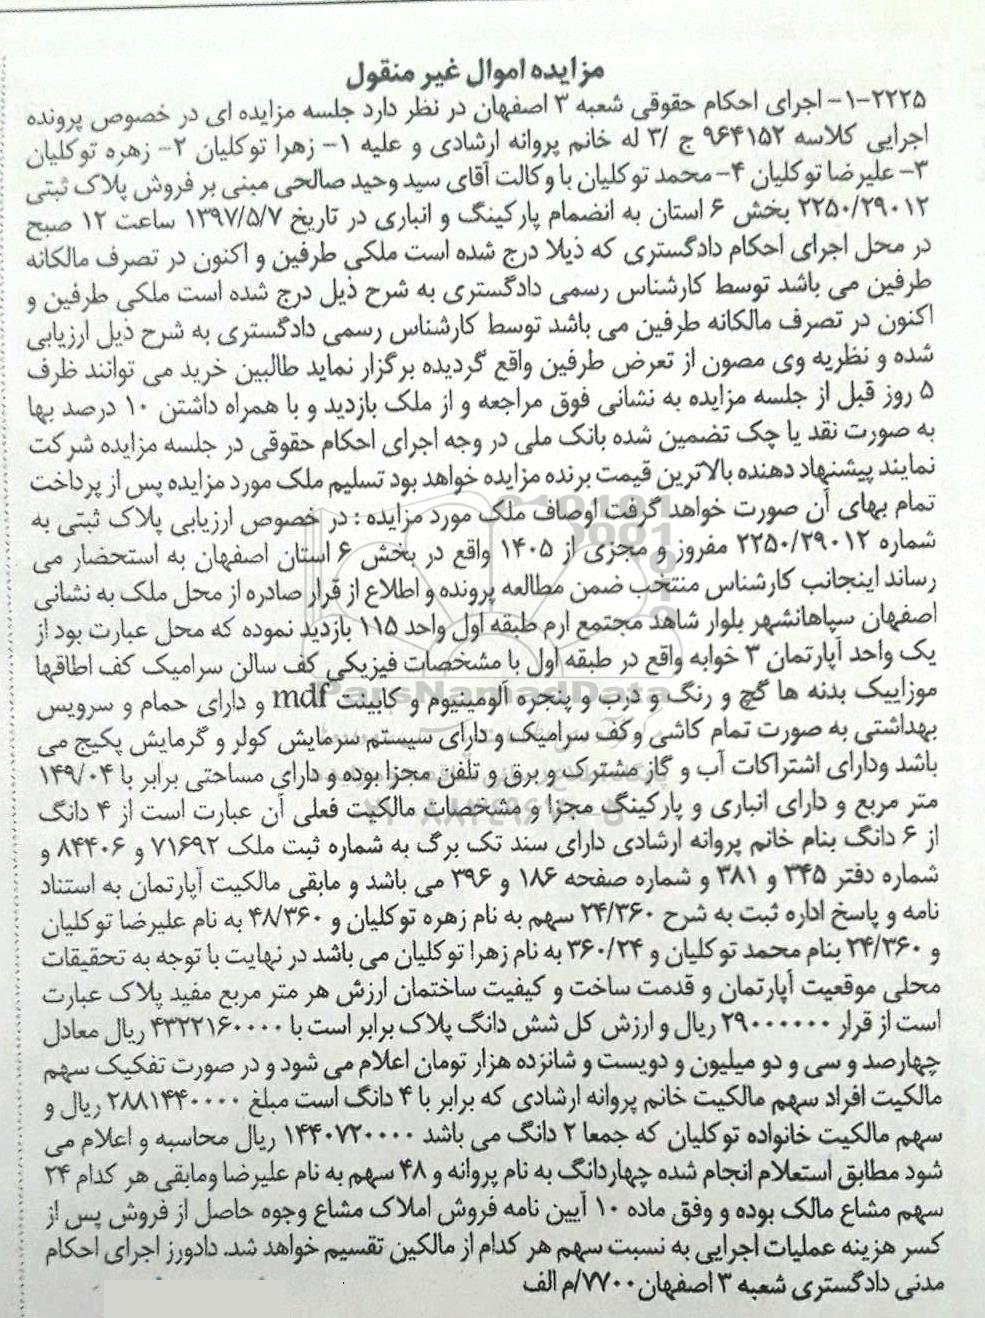 مزایده اموال غیر منقول
۲۲۲۵-۱- اجرای احکام حقوقی شعبه ۳ اصفهان در نظر دارد جلسه مزایده ای در خصوص پرونده
اجرایی کلاسه ۹۶۴۱۵۲ ج /۳ له خانم پروانه ارشادی و علیه ۱- زهرا توکلیان ۲- زهره توکلیان
۳- علیرضا توکلیان ۴- محمد توکلیان با وکالت آقای سید وحید صالحی مبنی بر فروش پلاک ثبتی
۲۲۵۰/۲۹۰۱۲ بخش ۶ استان به انضمام پارکینگ و انباری در تاریخ ۱۳۹۷/۵/۷ ساعت ۱۲ صبح
در محل اجرای احکام دادگستری که ذیلا درج شده است ملکی طرفین و اکنون در تصرف مالکانه
طرفین می باشد توسط کارشناس رسمی دادگستری به شرح ذیل درج شده است ملکی طرفین و
اکنون در تصرف مالکانه طرفین می باشد توسط کارشناس رسمی دادگستری به شرح ذیل ارزیابی
شده و نظریه وی مصون از تعرض طرفین واقع گردیده برگزار نماید طالبین خرید می توانند ظرف
۵ روز قبل از جلسه مزایده به نشانی فوق مراجعه و از ملک بازدید و با همراه داشتن ۱۰ درصد بها
به صورت نقد یا چک تضمین شده بانک ملی در وجه اجرای احکام حقوقی در جلسه مزایده شرکت
نمایند پیشنهاد دهنده بالاترین قیمت برنده مزایده خواهد بود تسلیم ملک مورد مزایده پس از پرداخت
تمام بهای آن صورت خواهد گرفت اوصاف ملک مورد مزایده : در خصوص ارزیابی پلاک ثبتی به
شماره ۲۲۵۰/۲۹۰۱۲ مفروز و مجزی از ۱۴۰۵ واقع در بخش ۶ استان اصفهان به استحضار می
رساند اینجانب کارشناس منتخب ضمن مطالعه پرونده و اطلاع از قرار صادره از محل ملک به نشانی
اصفهان سپاهانشهر بلوار شاهد مجتمع ارم طبقه اول واحد ۱۱۵ بازدید نموده که محل عبارت بود از
یک واحد آپارتمان ۳ خوابه واقع در طبقه اول با مشخصات فیزیکی کف سالن سرامیک کف اطاقها
موزاییک بدنه ها گچ و رنگ و درب و پنجره آلومینیوم و کابینت mdf و دارای حمام و سرویس
بهداشتی به صورت تمام کاشی وکف سرامیک و دارای سیستم سرمایش کولر و گرمایش پکیج می
باشد ودارای اشتراکات آب و گاز مشترک و برق و تلفن مجزا بوده و دارای مساحتی برابر با ۱۴۹/۰۴
متر مربع و دارای انباری و پارکینگ مجزا و مشخصات مالکیت فعلی آن عبارت است از ۴ دانگ
از ۶ دانگ بنام خانم پروانه ارشادی دارای سند تک برگ به شماره ثبت ملک ۷۱۶۹۲ و ۸۴۴۰۶ و
شماره دفتر ۳۴۵ و ۳۸۱ و شماره صفحه ۱۸۶ و ۳۹۶ می باشد و مابقی مالکیت آپارتمان به استناد
نامه و پاسخ اداره ثبت به شرح ۲۴/۳۶۰ سهم به نام زهره توکلیان و ۴۸/۳۶۰ به نام علیرضا توکلیان
و ۲۴/۳۶۰ بنام محمد توکلیان و ۳۶۰/۲۴ به نام زهرا توکلیان می باشد در نهایت با توجه به تحقیقات
محلی موقعیت آپارتمان و قدمت ساخت و کیفیت ساختمان ارزش هر متر مربع مفید پلاک عبارت
است از قرار ۲۹۰۰۰۰۰۰ ریال و ارزش کل شش دانگ پلاک برابر است با ۴۳۲۲۱۶۰۰۰۰ ریال معادل
چهارصد و سی و دو میلیون و دویست و شانزده هزار تومان اعلام می شود و در صورت تفکیک سهم
مالکیت افراد سهم مالکیت خانم پروانه ارشادی که برابر با ۴ دانگ است مبلغ ۲۸۸۱۴۴۰۰۰۰ ریال و
سهم مالکیت خانواده توکلیان که جمعا ۲ دانگ می باشد ۱۴۴۰۷۲۰۰۰۰ ریال محاسبه و اعلام می
شود مطابق استعلام انجام شده چهاردانگ به نام پروانه و ۴۸ سهم به نام علیرضا ومابقی هر کدام ۲۴
سهم مشاع مالک بوده و وفق ماده ۱۰ آیین نامه فروش املاک مشاع وجوه حاصل از فروش پس از
کسر هزینه عملیات اجرایی به نسبت سهم هر کدام از مالکین تقسیم خواهد شد. دادورز اجرای احکام
مدنی دادگستری شعبه ۳ اصفهان ۷۷۰۰/م الف
ParsNamadData